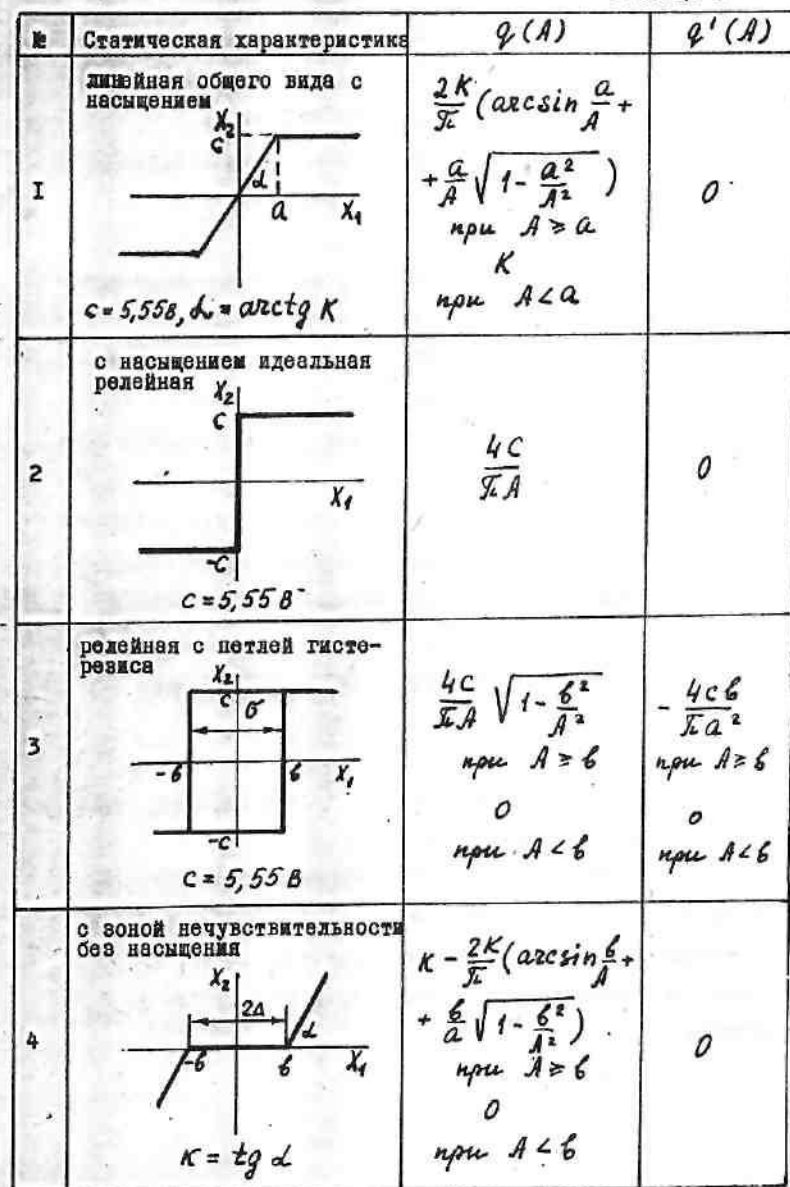 № Статическая характеристика q(A) q'(A)
I
линейная общего вида с
насыщением
X₂
c
α
a X₁
c = 5,55в, α = arctg K
2K/π (arcsin a/A +
+ a/A √(1 - a²/A²))
при A ≥ a
K
при A < a
0
2
с насыщением идеальная
релейная
X₂
c
X₁
-c
c = 5,55 В
4C/πA
0
3
релейная с петлей гисте-
резиса
X₂
c
σ
-в в X₁
-c
c = 5,55 В
4C/πA √(1 - в²/A²)
при A ≥ в
0
при A < в
- 4cв/πa²
при A ≥ в
0
при A < в
4
с зоной нечувствительности
без насыщения
X₂
2Δ
α
-в в X₁
K = tg α
K - 2K/π (arcsin в/A +
+ в/a √(1 - в²/A²))
при A ≥ в
0
при A < в
0